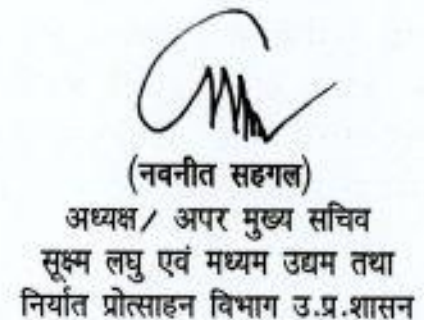 (नवनीत सहगल)
अध्यक्ष/ अपर मुख्य सचिव
सूक्ष्म लघु एवं मध्यम उद्यम तथा
निर्यात प्रोत्साहन विभाग उ.प्र.शासन